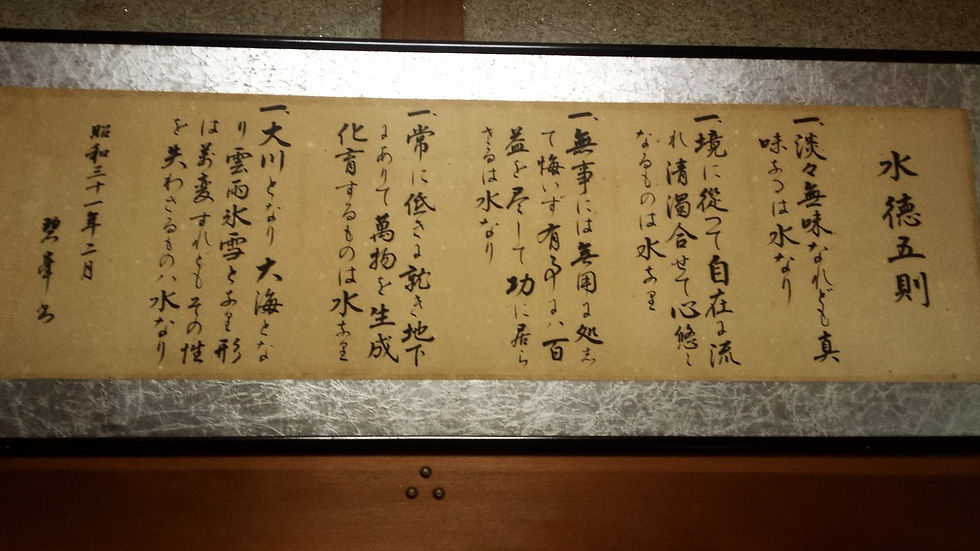 水徳五則
一、淡々無味なれども真
味なるは水なり
一、境に従つて自在に流
れ清濁合せて心悠々
なるものは水なり
一、無事には無用に処し
て悔いず有事にハ百
益を尽して功に居ら
さるは水なり
一、常に低きに就き地下
にありて萬物を生成
化育するものは水なり
一、大川となり大海とな
り雲雨氷雪となり形
は萬変すれどもその性
を失わさるものハ水なり
昭和三十一年二月
碧峯書